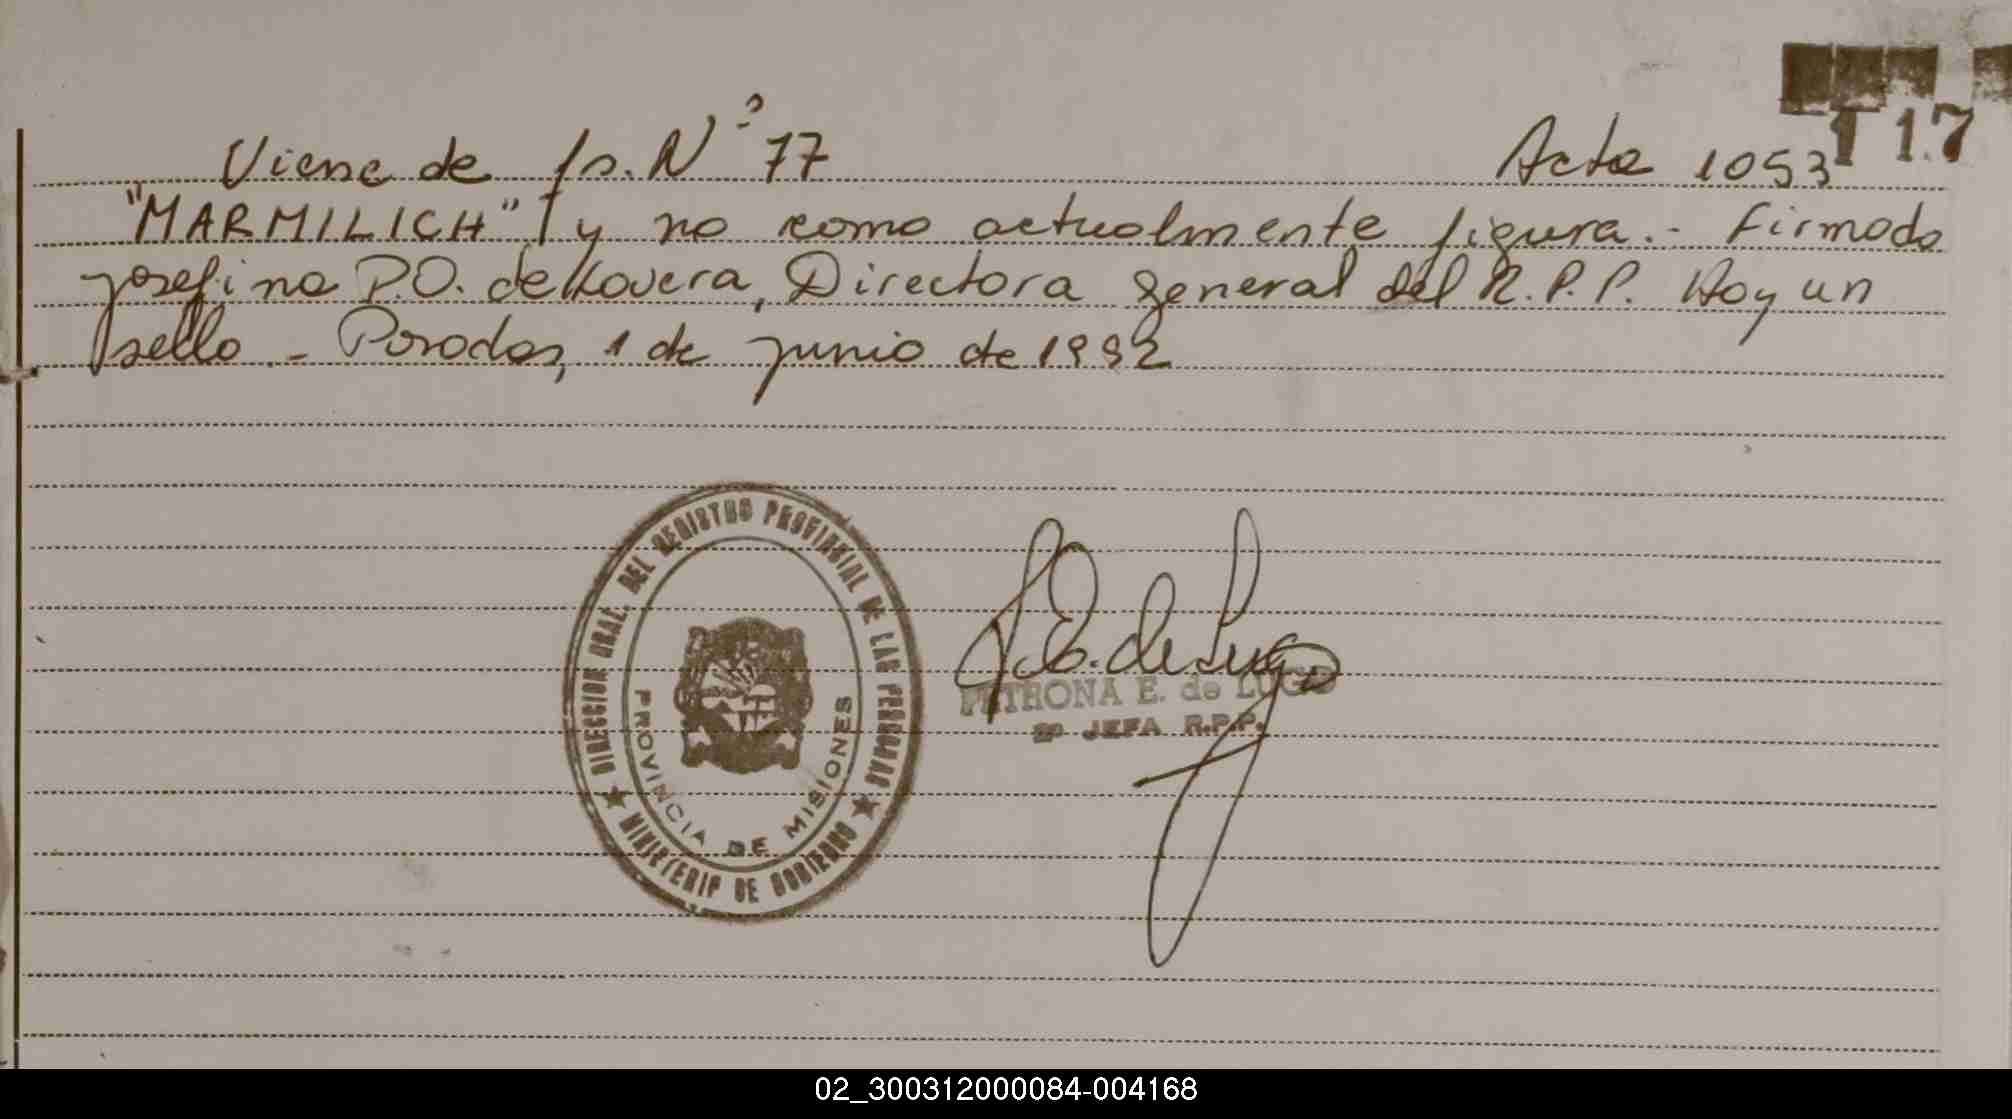 117
Viene de fs. Nº 77 Acta 1053
"MARMILICH" y no como actualmente figura.- Firmado
Josefina P.O. de Lovera, Directora general del R.P.P. Hay un
sello - Posadas, 1 de junio de 1992
DIRECCION GRAL. DEL REGISTRO PROVINCIAL DE LAS PERSONAS
PROVINCIA DE MISIONES
MINISTERIO DE GOBIERNO
P.E. de Lugo
PETRONA E. de LUGO
2º JEFA R.P.P.
02_300312000084-004168